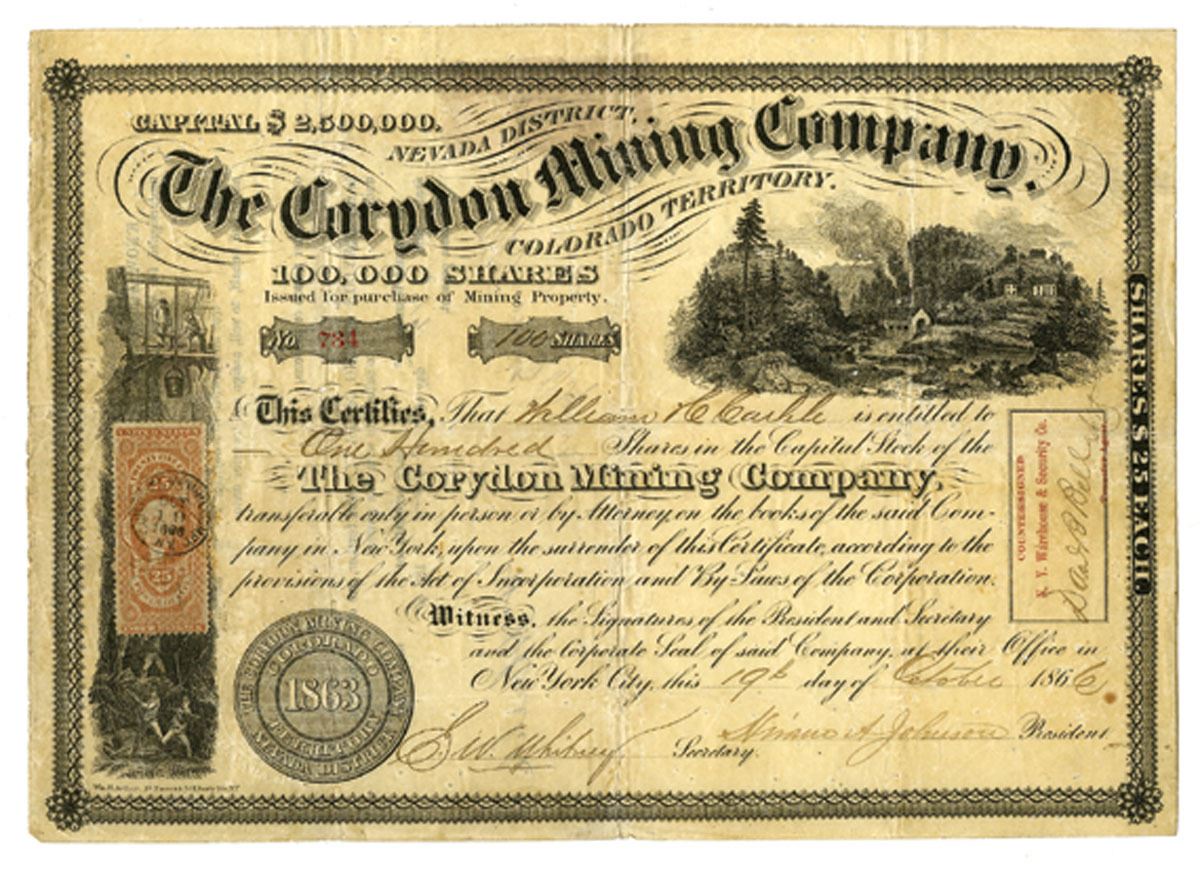 CAPITAL $2,500,000.
NEVADA DISTRICT.
The Corydon Mining Company.
COLORADO TERRITORY.
100,000 SHARES
Issued for purchase of Mining Property.
No. 734
100 SHARES
This Certifies, That William H. is entitled to
One Hundred Shares in the Capital Stock of the
The Corydon Mining Company,
transferable only in person or by Attorney, on the books of the said Com-
pany in New York, upon the surrender of this Certificate, according to the
provisions of the Act of Incorporation and By-Laws of the Corporation.
Witness, the Signatures of the President and Secretary
and the Corporate Seal of said Company, at their Office in
New York City, this 19th day of October 1866
E. W. Whitney Secretary.
A. Johnson President
THE CORYDON MINING COMPANY
COLORADO
1863
TERRITORY
NEVADA DISTRICT
COUNTERSIGNED
N. Y. Warehouse & Security Co.
SHARES $25 EACH
25
25